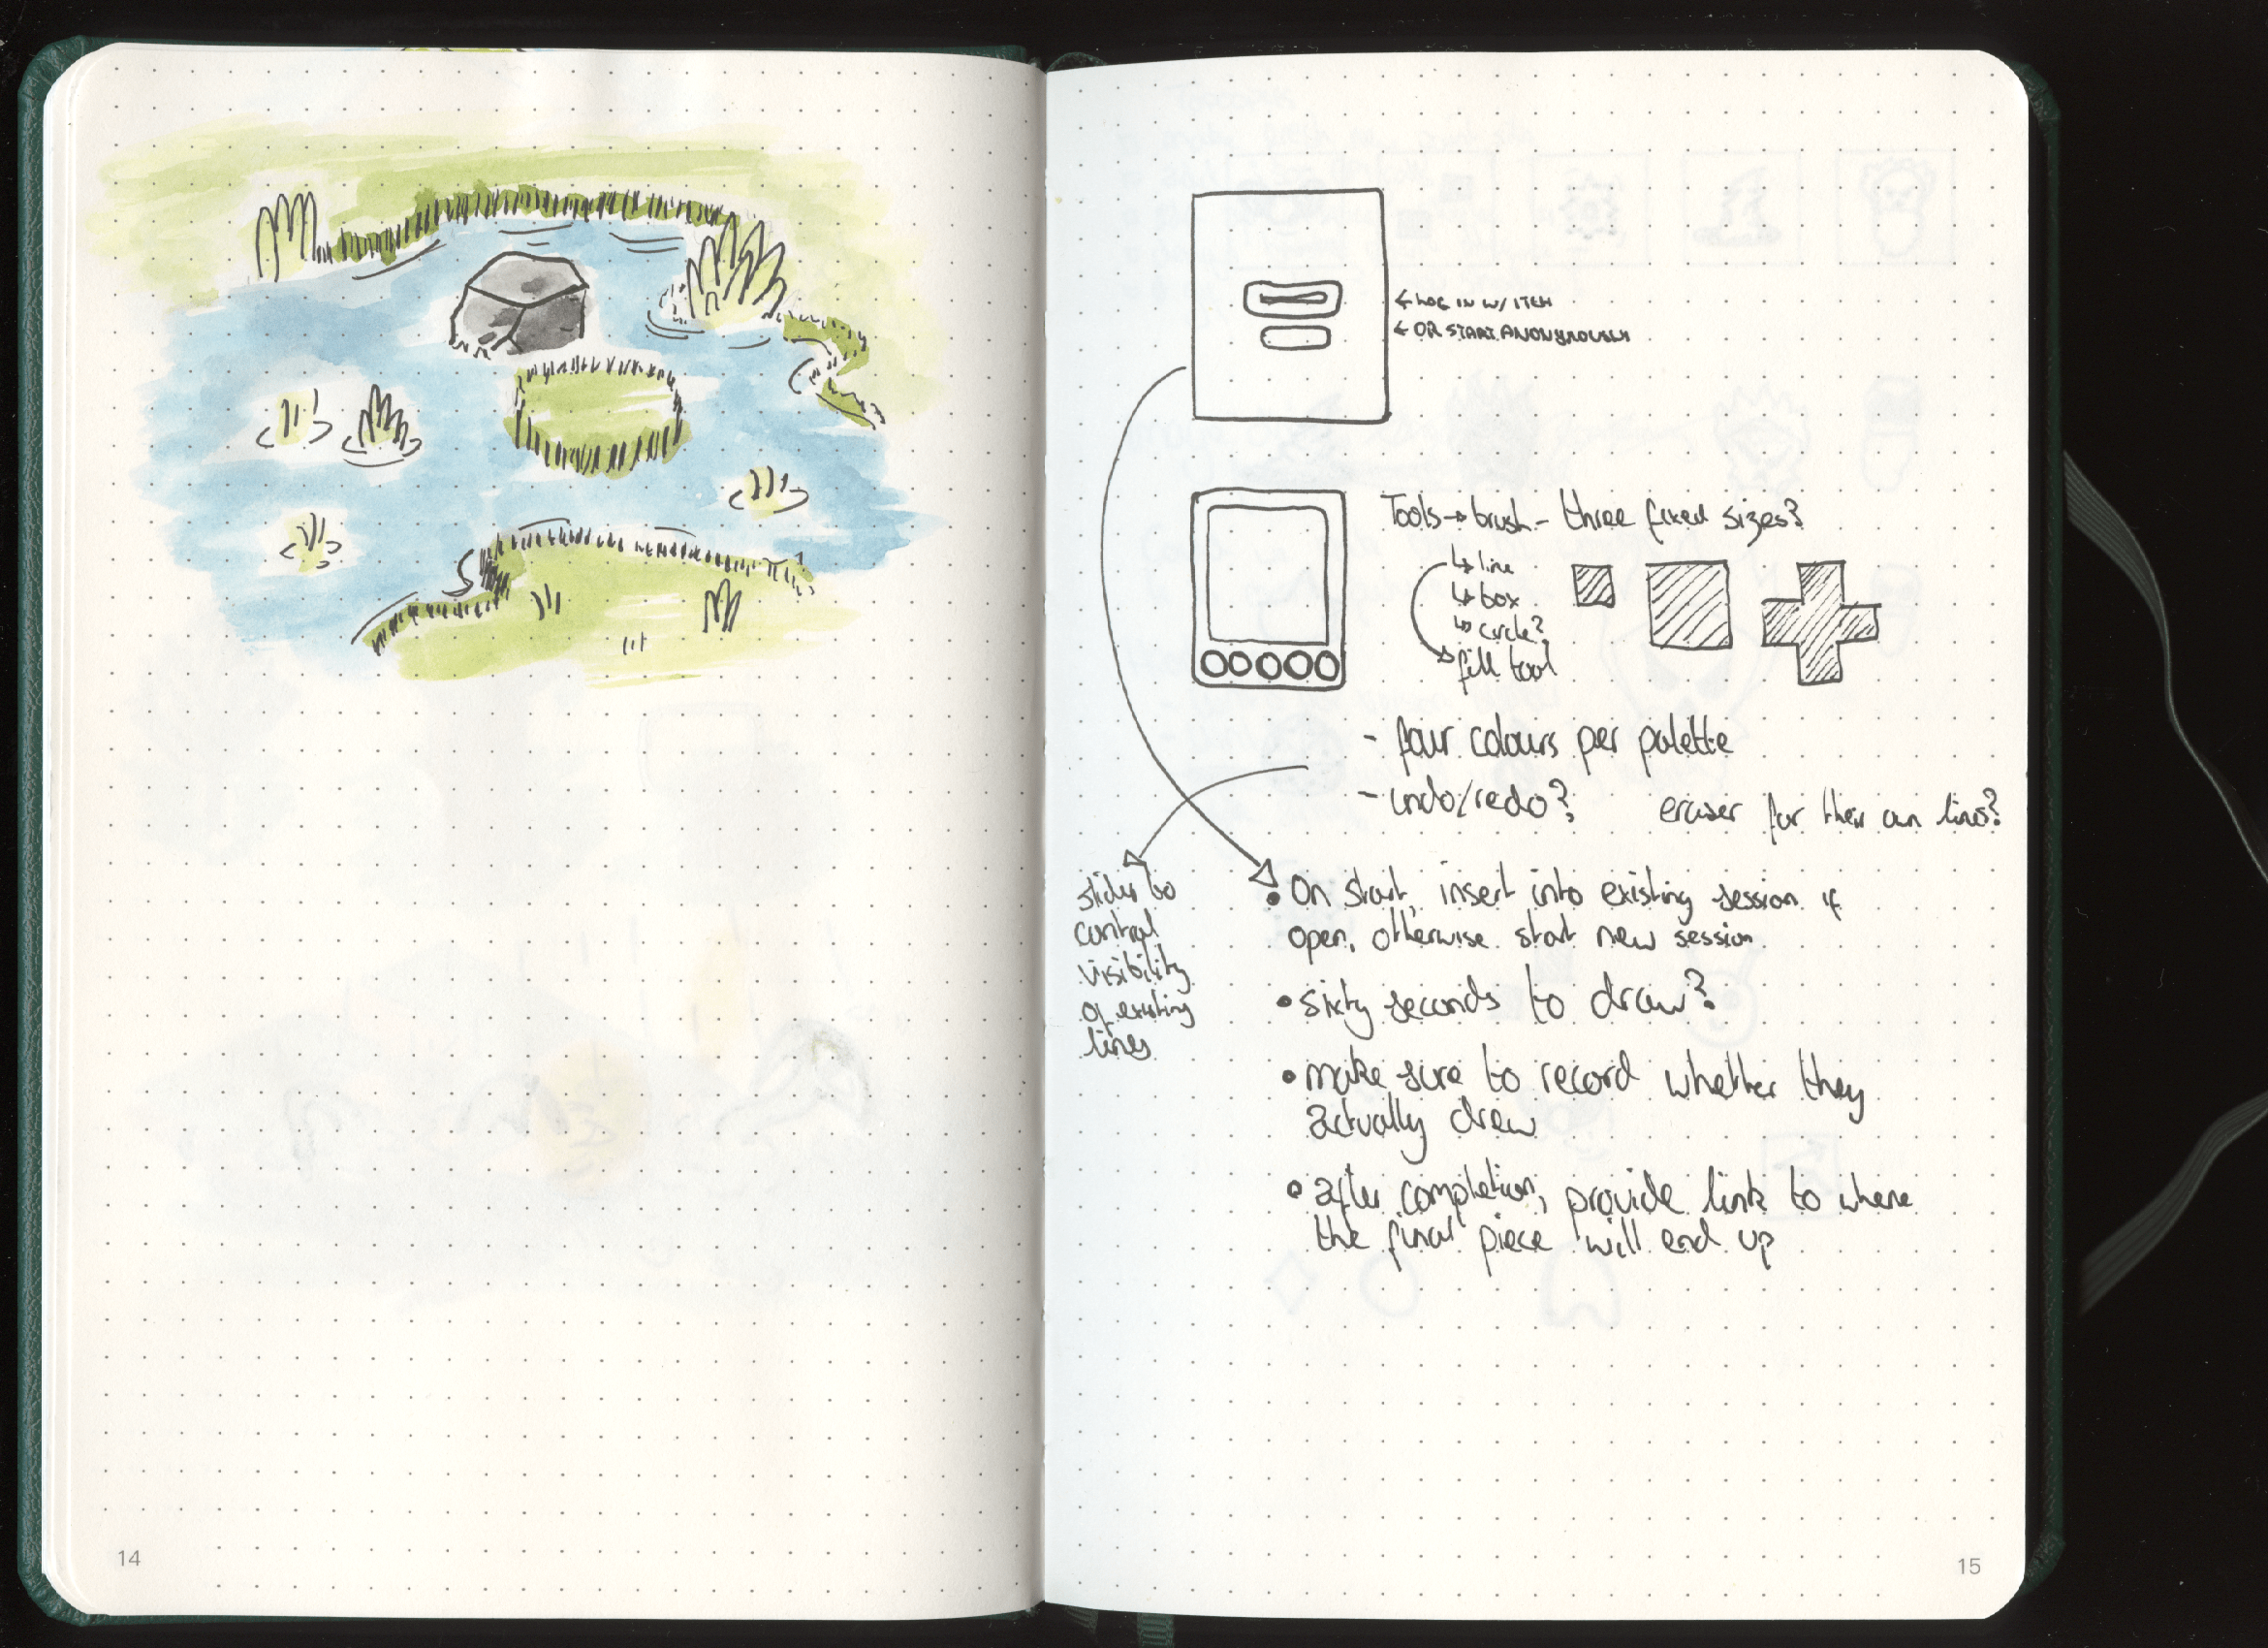 ← LOG IN W/ ITCH
← OR START ANONYMOUSLY
Tools → brush - three fixed sizes?
↳ line
↳ box
↳ circle?
fill tool
- four colours per palette
- undo/redo?
eraser for their own lines?
slider to
control
visibility
of existing
lines
• On start, insert into existing session if
open, otherwise start new session
• sixty seconds to draw?
• make sure to record whether they
actually drew
• after completion, provide link to where
the final piece will end up
14
15